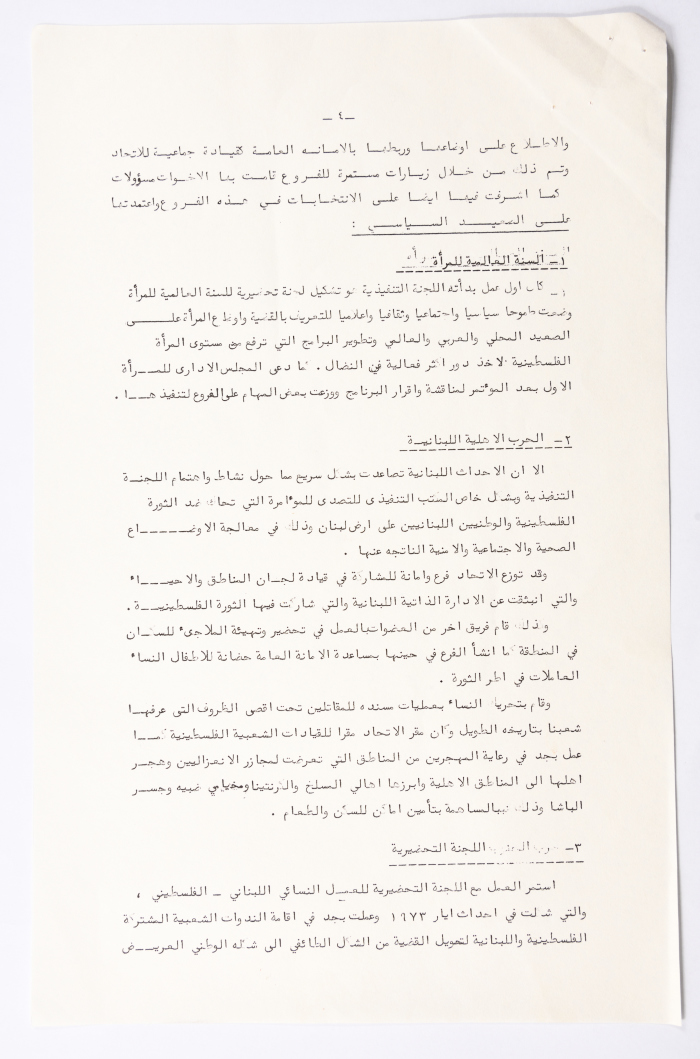 ـ ٤ ـ
والاطلاع على اوضاعها وربطها بالامانه العامة كقيادة جماعية للاتحاد
وتم ذلك من خلال زيارات مستمرة للفروع قامت بها الاخوات مسؤولات
كما اشرفت فيها ايضا على الانتخابات في هذه الفروع واعتمدتها
على الصعيد السياسي :
١ـ السنة العالمية للمرأة
كان اول عمل بدأته اللجنة التنفيذية هو تشكيل لجنة تحضيرية للسنة العالمية للمرأة
وضعت طموحا سياسيا واجتماعيا وثقافيا واعلاميا للتعريف بالقضية واوضاع المرأة على
الصعيد المحلي والعربي والعالمي وتطوير البرامج التي ترفع من مستوى المرأة
الفلسطينية لاخذ دور اكثر فعالية في النضال . كما دعى المجلس الادارى للمرأة
الاول بعد المؤتمر لمناقشة واقرار البرنامج ووزعت بعض المهام على الفروع لتنفيذها .
٢ـ الحرب الاهلية اللبنانية
الا ان الاحداث اللبنانية تصاعدت بشكل سريع مما حول نشاط واهتمام اللجنة
التنفيذية وبشكل خاص المكتب التنفيذى للتصدى للموٴامرة التي تحاك ضد الثورة
الفلسطينية والوطنيين اللبنانيين على ارض لبنان وذلك في معالجة الاوضاع
الصحية والاجتماعية والامنية الناتجه عنها .
وقد توزع الاتحاد فرع وامانة للمشاركة في قيادة لجان المناطق والاحياء
والتي انبثقت عن الادارة الذاتية اللبنانية والتي شاركت فيها الثورة الفلسطينية .
وكذلك قام فريق اخر من العضوات بالعمل في تحضير وتهيئة الملاجىء للسكان
في المنطقة كما انشأ الفرع في حينها بمساعدة الامانة العامة حضانة للاطفال النساء
العاملات في اطر الثورة .
وقام بتحريك النساء بعمليات سنده للمقاتلين تحت اقصى الظروف التى عرفها
شعبنا بتاريخه الطويل وكان مقر الاتحاد مقرا للقيادات الشعبية الفلسطينية كما
عمل بجد في رعاية المهجرين من المناطق التي تعرضت لمجازر الانعزاليين وهجر
اهلها الى المناطق الاهلية وابرزها اهالي المسلخ والكرنتينا ومخيامي ضبيه وجسر
الباشا وذلك بالمساهمة بتأمين اماكن للسكن والطعام .
٣ـ اللجنة التحضيرية
استمر العمل مع اللجنة التحضيرية للعمل النسائي اللبناني ـ الفلسطيني ،
والتي شكلت في احداث ايار ١٩٧٣ وعملت بجد في اقامة الندوات الشعبية المشتركة
الفلسطينية واللبنانية لتحويل القضية من الشكل الطائفي الى شكله الوطني العريض